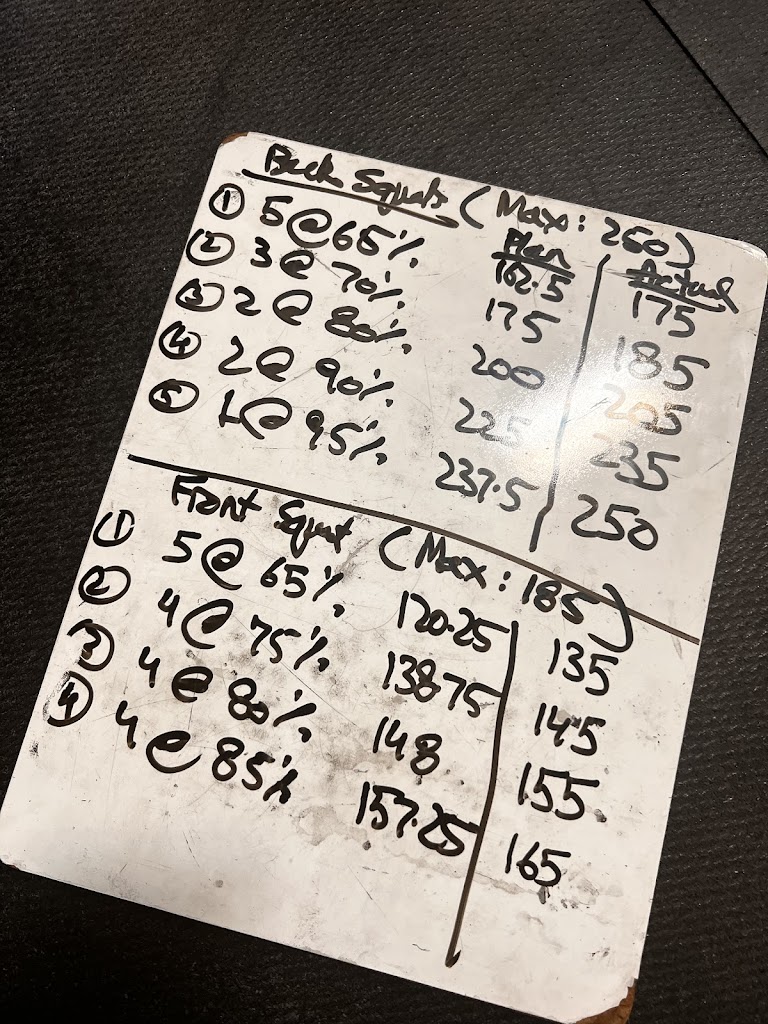 Back Squats (Max: 250)
Plan Actual
① 5@65% 162.5 175
② 3@ 70% 175 185
③ 2@ 80% 200 205
④ 2@ 90% 225 235
⑤ 1@ 95% 237.5 250
Front Squat (Max: 185)
① 5@ 65% 120.25 135
② 4@ 75% 138.75 145
③ 4@ 80% 148 155
④ 4@ 85% 157.25 165